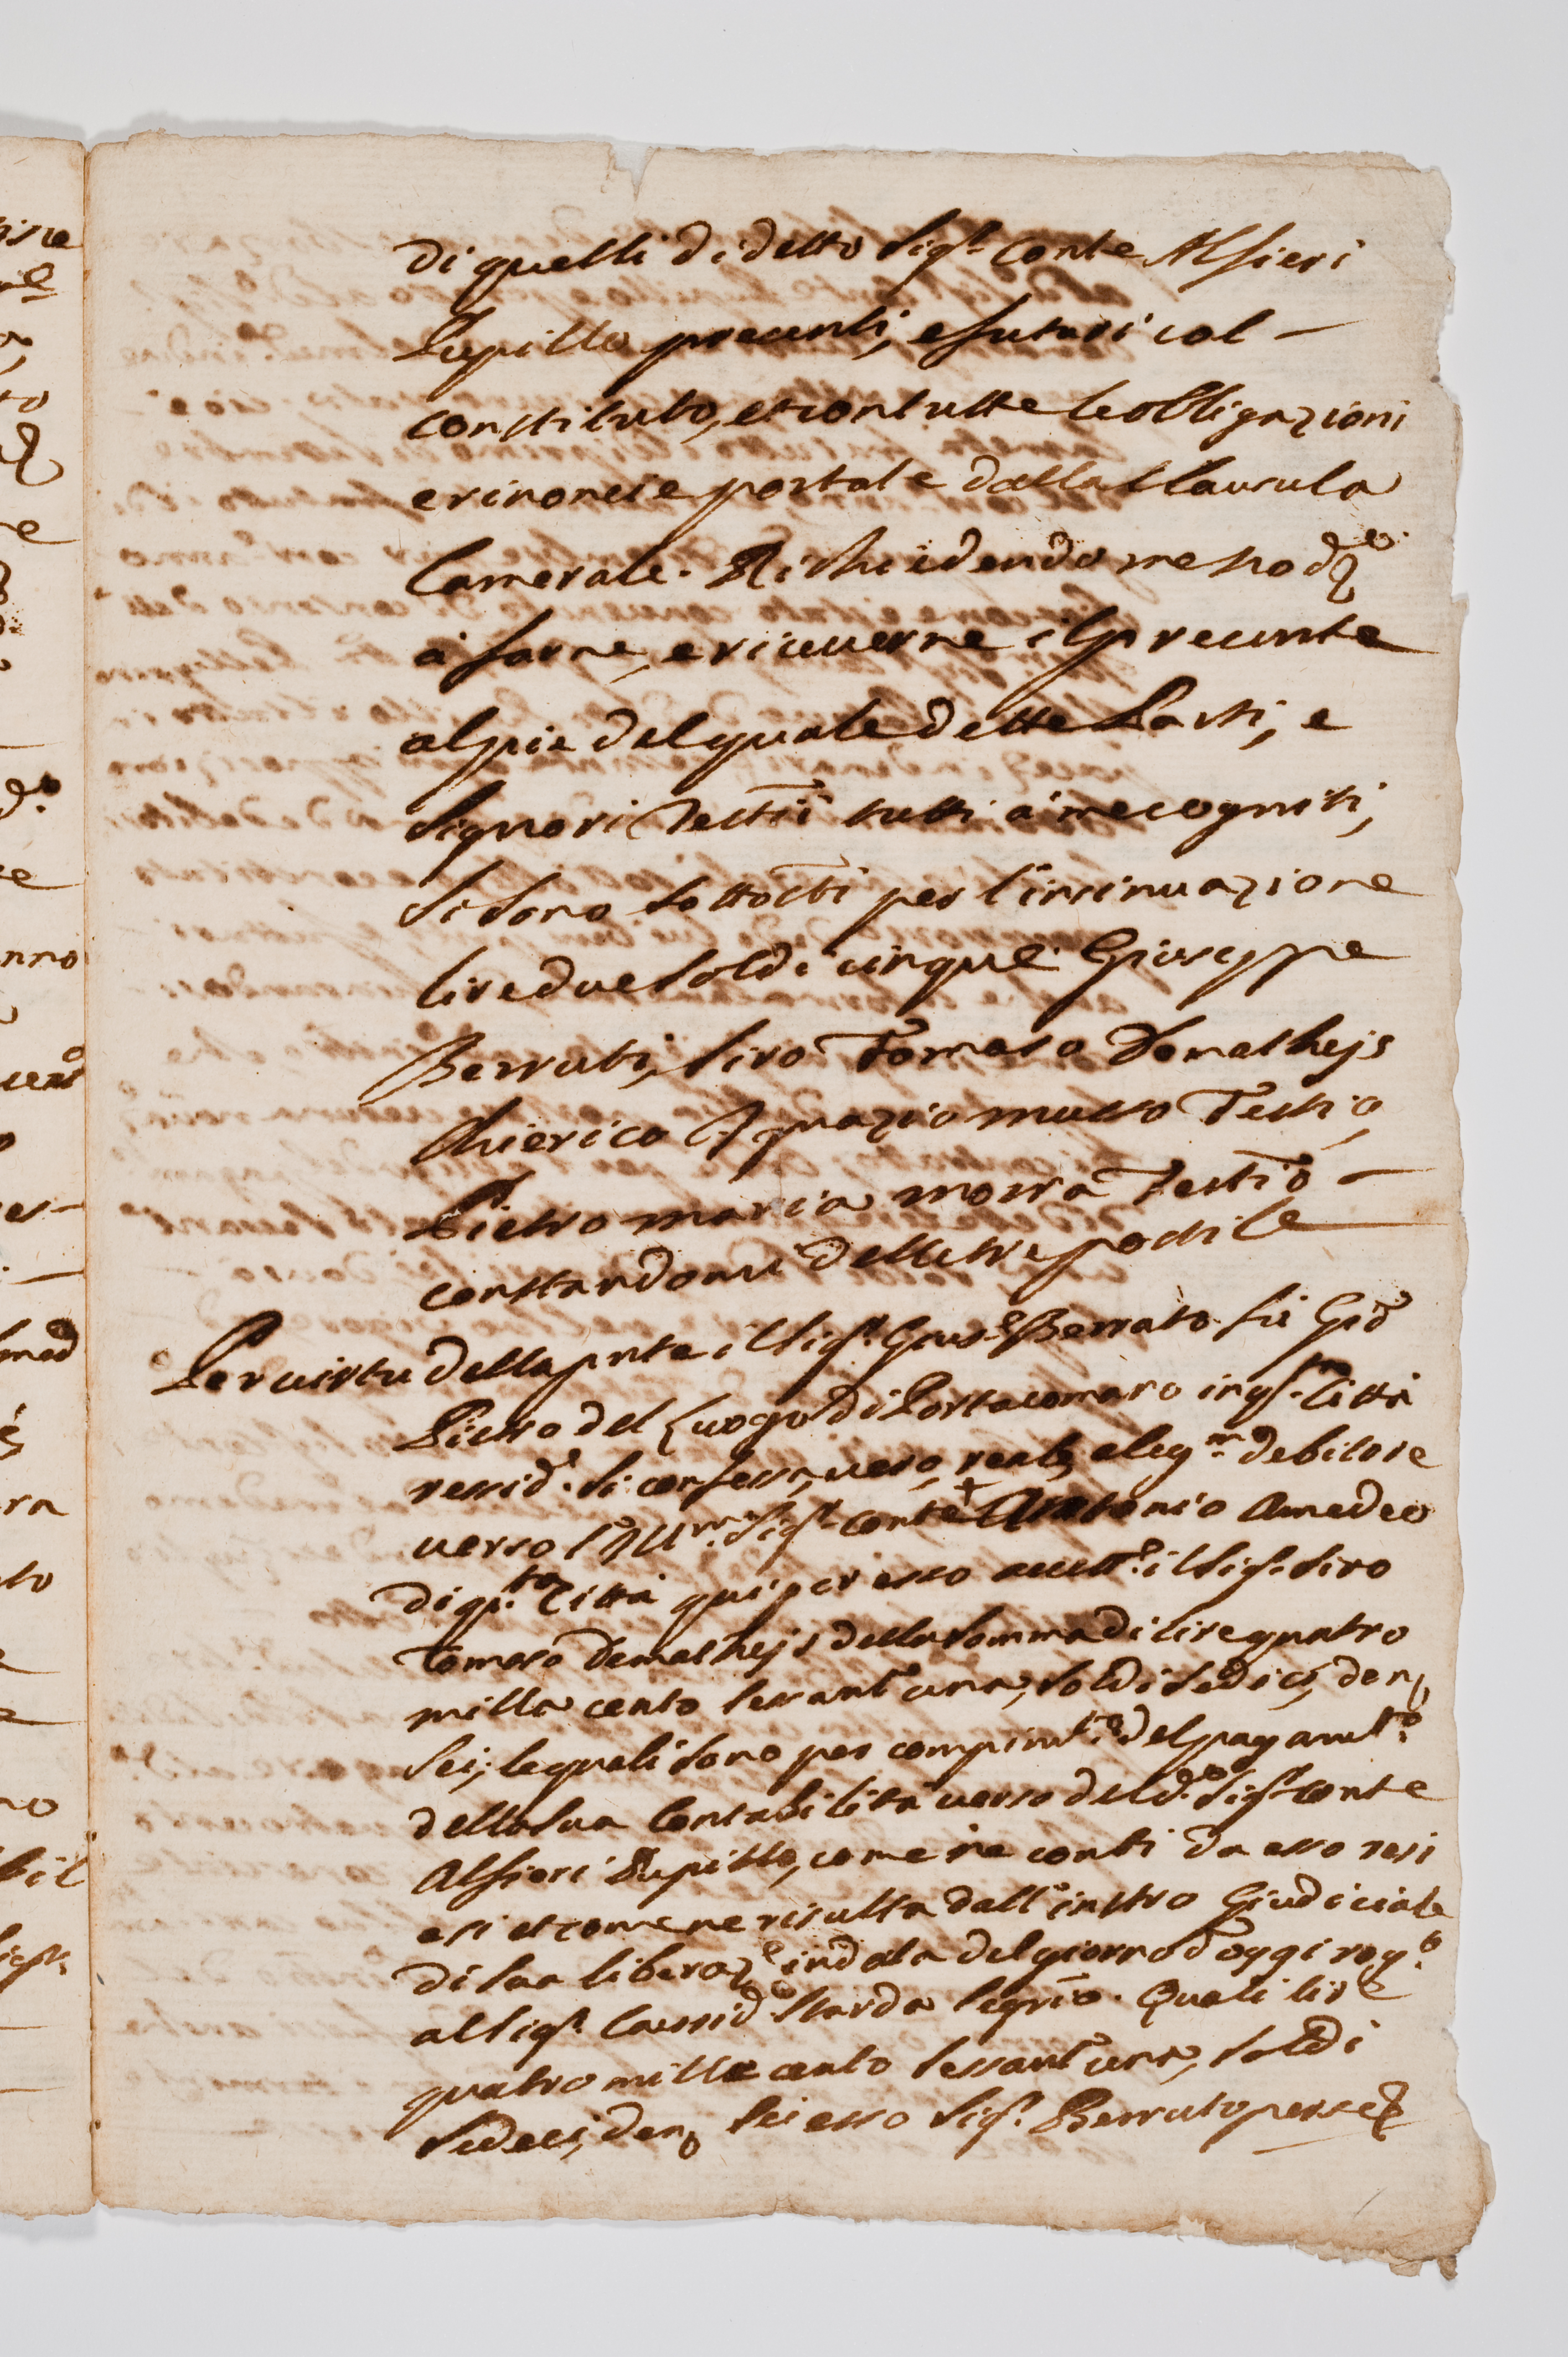 di quelli di detto Sig.r Conte Alfieri
Pupillo presenti, e futuri col -
constituto, et con tutte le obligazioni
e rinoncie portate dalla Clausula
Camerale. Richiedendo me nod.o
à farne, e riceverne il presente
al pie del quale dette Parti, e
Signori Testii tutti à me cogniti,
si sono sottotti per l'insinuazione
lire due soldi cinque. Giuseppe
Berruti, Siro Tomaso Demathejs
Chierico Ignazio musso Testio,
Pietro maria morra Testio -
constandomi delle tre postile
Per virtu della pnte il Sig.r Gius.e Berruto fù Gio
Pietro del Luogo di Portacomaro in q.sta Città
ressid. si confessa, vero, reale, e leg.mo debitore
verso l'Ill.mo Sig.r Conte + Antonio Amedeo
di q.ta Città qui per esso accett.e il Sig.r Siro
Tomaso Demathejs della somma di lire quatro
milla cento sessant'una, soldi sedici, den.
sei; le quali sono per compim.to del pagam.to
della sua Contabilità verso del d.o Sig.r Conte
Alfieri Pupillo, come ne conti da esso resi
esi et come ne risulta dall'instro Giudiciale
di sua liberaz.e in data del giorno d'oggi rog.o
al Sig.r Caussid. Starda Segrio. Quali lire
quatro mille cento sessant'una, soldi
sedeci, den. sei esso Sig.r Berruto per se